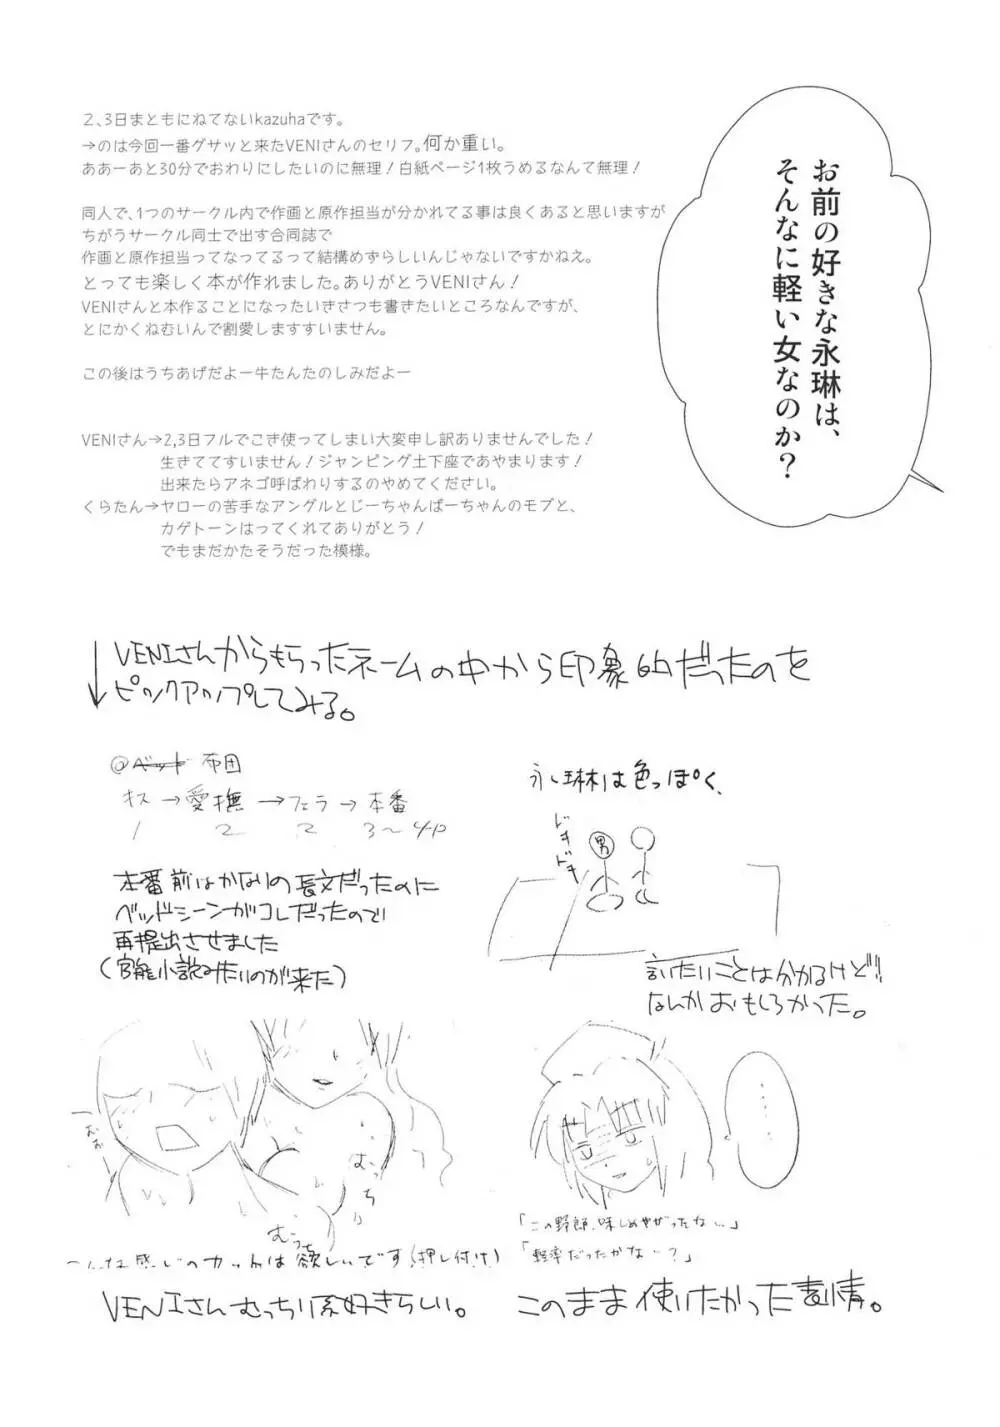 お前の好きな永琳は、
そんなに軽い女なのか？
２、3日まともにねてないkazuhaです。
→のは今回一番グサッと来たVENIさんのセリフ。何か重い。
ああーあと30分でおわりにしたいのに無理！白紙ページ1枚うめるなんて無理！
同人で、1つのサークル内で作画と原作担当が分かれてる事は良くあると思いますが
ちがうサークル同士で出す合同誌で
作画と原作担当ってなってるって結構めずらしいんじゃないですかねえ。
とっても楽しく本が作れました。ありがとうVENIさん！
VENIさんと本作ることになったいきさつも書きたいところなんですが、
とにかくねむいんで割愛しますすいません。
この後はうちあげだよー牛たんたのしみだよー
VENIさん→2,3日フルでこき使ってしまい大変申し訳ありませんでした！
生きててすいません！ジャンピング土下座であやまります！
出来たらアネゴ呼ばわりするのやめてください。
くらたん→ヤローの苦手なアングルとじーちゃんばーちゃんのモブと、
カゲトーンはってくれてありがとう！
でもまだかたそうだった模様。
↓VENIさんからもらったネームの中から印象的だったのを
ピックアップしてみる。
@ベット 布団
キス→愛撫→フェラ→本番
1 2 2 3〜4P
本番前はかなりの長文だったのに
ベッドシーンがコレだったので
再提出させました
(官能小説みたいのが来た)
永琳は色っぽく、
ドキドキ
男
言いたいことは分かるけど!!
なんかおもしろかった。
むっちり
むっち
こんな感じのカットは欲しいです(押し付け)
VENIさんむっちり系好きらしい。
……
「この野郎、味しめやがったな…」
「軽率だったかな…？」
このまま使いたかった表情。